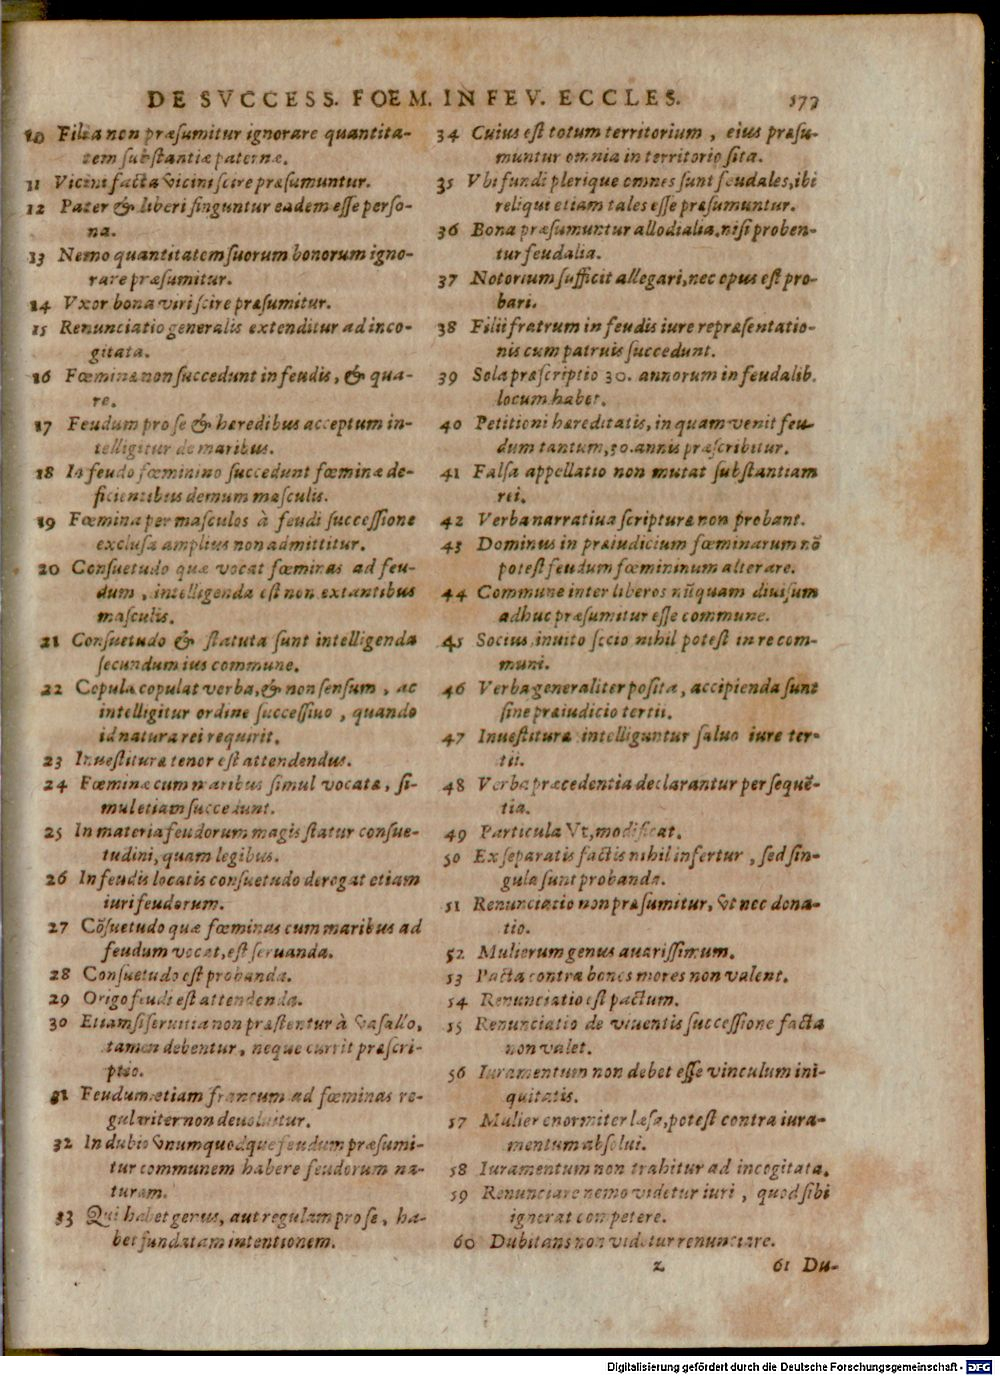 DE SVCCESS. FOEM. IN FEV. ECCLES. 177
10 Filia non præsumitur ignorare quantita-
tem substantiæ paternæ.
11 Vicini facta vicini scire præsumuntur.
12 Pater & liberi finguntur eadem esse perso-
na.
13 Nemo quantitatem suorum bonorum igno-
rare præsumitur.
14 Vxor bona viri scire præsumitur.
15 Renunciatio generalis extenditur ad inco-
gitata.
16 Fœminæ non succedunt in feudis, & qua-
re.
17 Feudum pro se & hæredibus acceptum in-
telligitur de maribus.
18 In feudo fœminino succedunt fœminæ de-
ficientibus demum masculis.
19 Fœmina per masculos à feudi successione
exclusa amplius non admittitur.
20 Consuetudo quæ vocat fœminas ad feu-
dum, intelligenda est non extantibus
masculis.
21 Consuetudo & statuta sunt intelligenda
secundum ius commune.
22 Copula copulat verba, & non sensum, ac
intelligitur ordine successiuo, quando
id natura rei requirit.
23 Inuestituræ tenor est attendendus.
24 Fœminæ cum maribus simul vocatæ, si-
mul etiam succedunt.
25 In materia feudorum magis statur consue-
tudini, quam legibus.
26 In feudis locatis consuetudo derogat etiam
iuri feudorum.
27 Cōsuetudo quæ fœminas cum maribus ad
feudum vocat, est seruanda.
28 Consuetudo est probanda.
29 Origo feudi est attendenda.
30 Etiamsi seruitia non præstentur à vasallo,
tamen debentur, neque currit præscri-
ptio.
31 Feudum etiam francum ad fœminas re-
gulariter non deuoluitur.
32 In dubio vnumquodque feudum præsumi-
tur communem habere feudorum na-
turam.
33 Qui habet genus, aut regulam pro se, ha-
bet fundatam intentionem.
34 Cuius est totum territorium, eius præsu-
muntur omnia in territorio sita.
35 Vbi fundi plerique omnes sunt feudales, ibi
reliqui etiam tales esse præsumuntur.
36 Bona præsumuntur allodialia, nisi proben-
tur feudalia.
37 Notorium sufficit allegari, nec opus est pro-
bari.
38 Filii fratrum in feudis iure repræsentatio-
nis cum patruis succedunt.
39 Sola præscriptio 30. annorum in feudalib.
locum habet.
40 Petitioni hæreditatis, in quam venit feu-
dum tantum, 30. annis præscribitur.
41 Falsa appellatio non mutat substantiam
rei.
42 Verba narratiua scripturæ non probant.
43 Dominus in præiudicium fœminarum nō
potest feudum fœmininum alterare.
44 Commune inter liberos nūquam diuisum
adhuc præsumitur esse commune.
45 Socius inuito socio nihil potest in re com-
muni.
46 Verba generaliter posita, accipienda sunt
sine præiudicio tertii.
47 Inuestituræ intelliguntur saluo iure ter-
tii.
48 Verba præcedentia declarantur per sequē-
tia.
49 Particula Vt, modificat.
50 Ex separatis factis nihil infertur, sed sin-
gula sunt probanda.
51 Renunciatio non præsumitur, vt nec dona-
tio.
52 Mulierum genus auarissimum.
53 Pacta contra bonos mores non valent.
54 Renunciatio est pactum.
55 Renunciatio de viuentis successione facta
non valet.
56 Iuramentum non debet esse vinculum ini-
quitatis.
57 Mulier enormiter læsa, potest contra iura-
mentum absolui.
58 Iuramentum non trahitur ad incogitata.
59 Renunciare nemo videtur iuri, quod sibi
ignorat competere.
60 Dubitans non videtur renunciare.
z 61 Du-
Digitalisierung gefördert durch die Deutsche Forschungsgemeinschaft - DFG